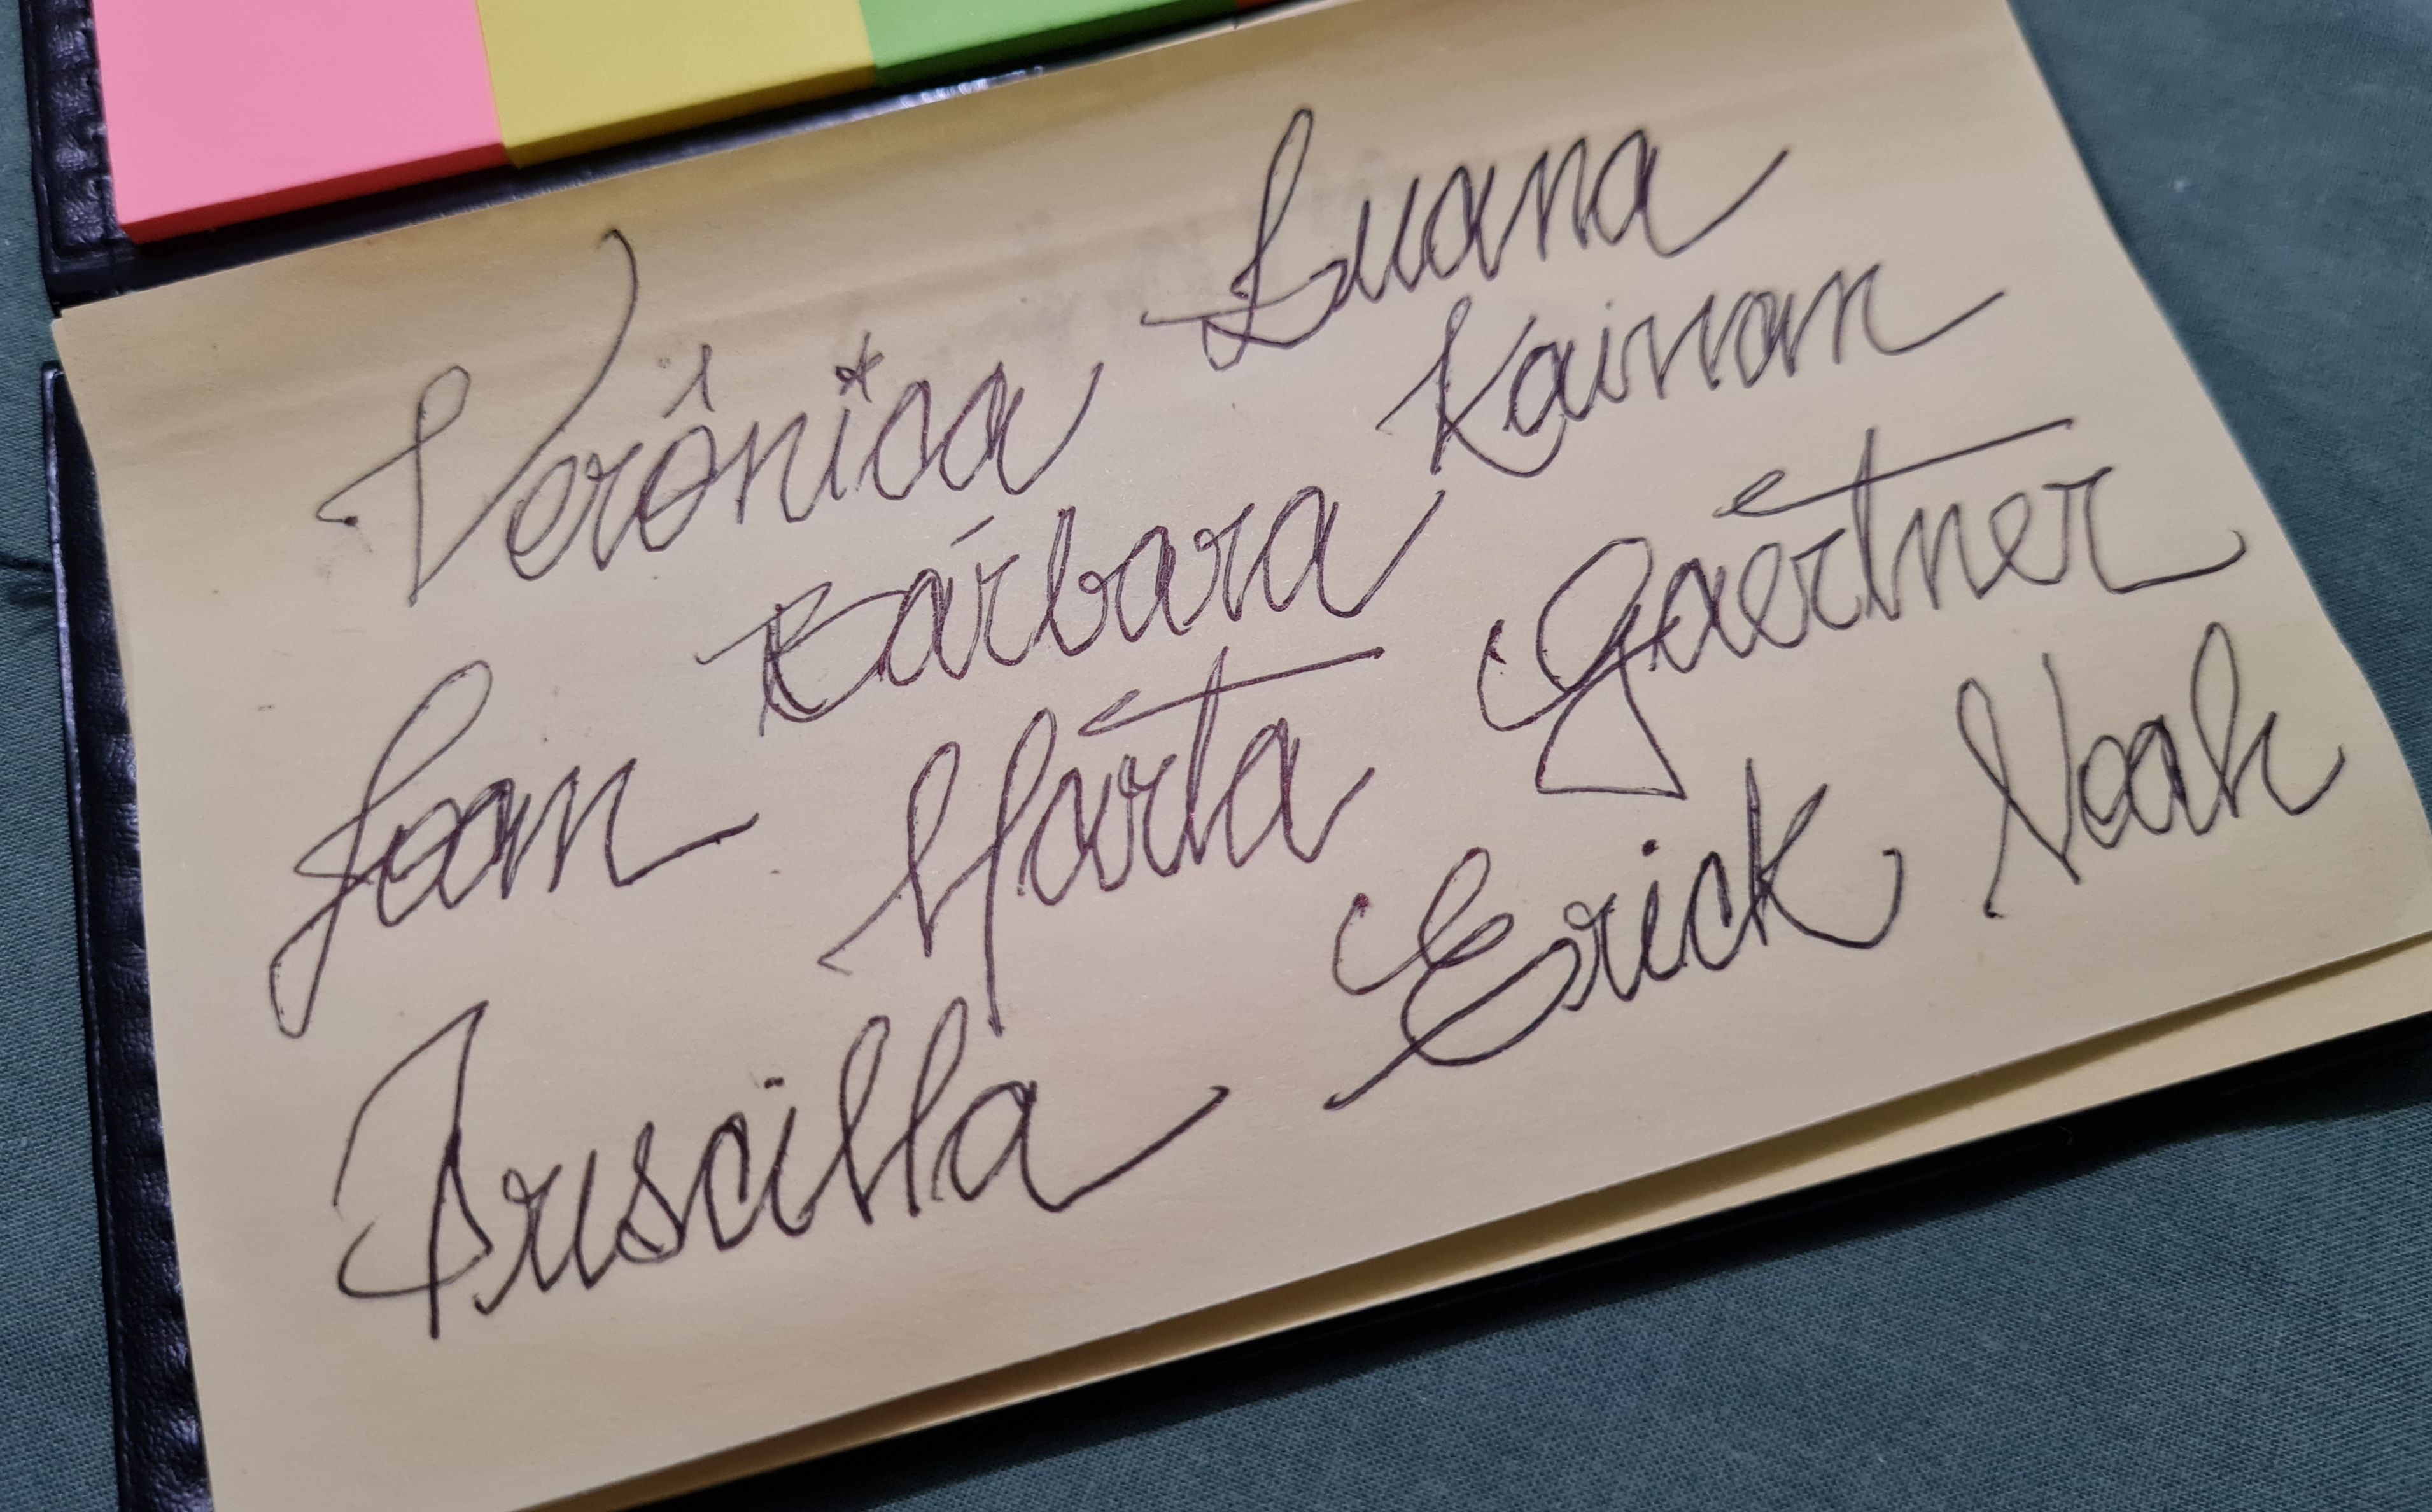 Verônica Luana
Bárbara Kainan
Jean Marta Gaertner
Priscilla Erick Noah